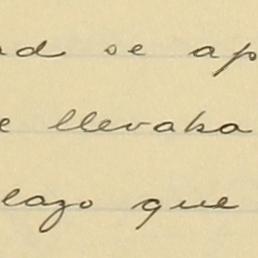 ad se ap
e llevaba
lazo que